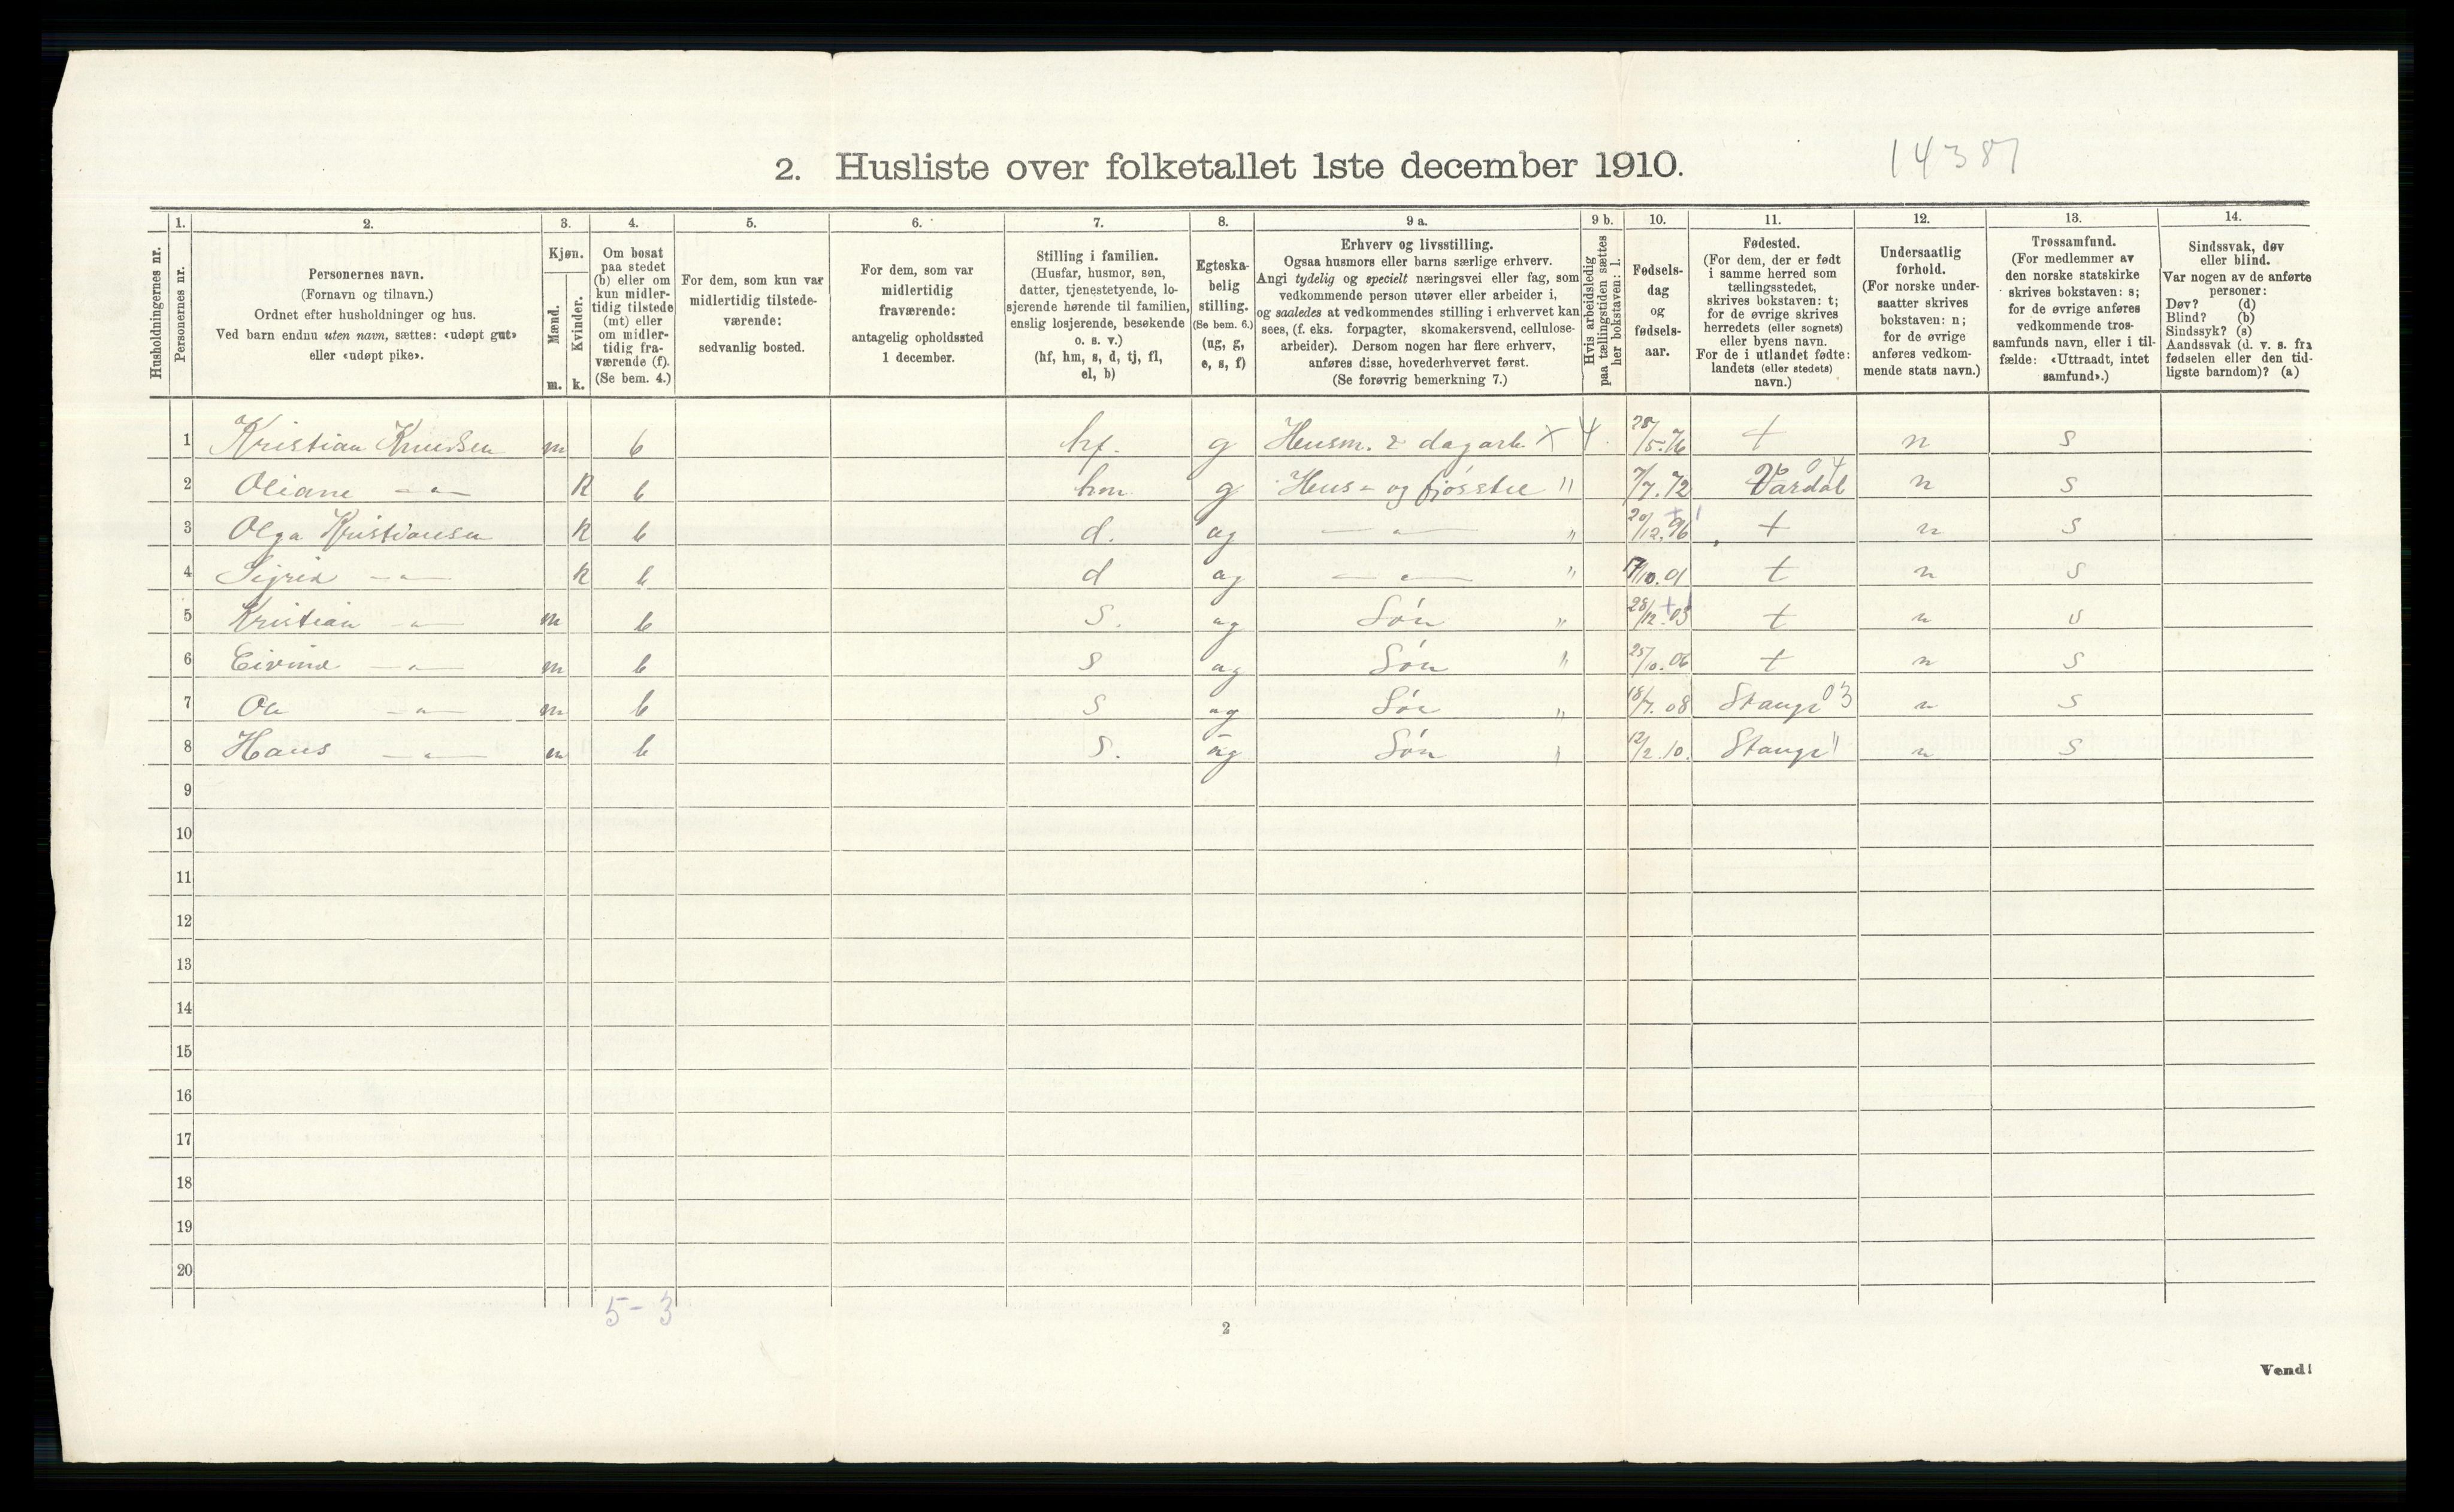 2. Husliste over folketallet 1ste december 1910.
14387
Husholdningernes nr.
1.
Personernes nr.
2.
Personernes navn.
(Fornavn og tilnavn.)
Ordnet efter husholdninger og hus.
Ved barn endnu uten navn, sættes: «udøpt gut»
eller «udøpt pike».
3.
Kjøn.
Mænd.
Kvinder.
m. k.
4.
Om bosat
paa stedet
(b) eller om
kun midler-
tidig tilstede
(mt) eller
om midler-
tidig fra-
værende (f).
(Se bem. 4.)
5.
For dem, som kun var
midlertidig tilstede-
værende:
sedvanlig bosted.
6.
For dem, som var
midlertidig
fraværende:
antagelig opholdssted
1 december.
7.
Stilling i familien.
(Husfar, husmor, søn,
datter, tjenestetyende, lo-
sjerende hørende til familien,
enslig losjerende, besøkende
o. s. v.)
(hf, hm, s, d, tj, fl,
el, b)
8.
Egteska-
belig
stilling.
(Se bem. 6.)
(ug, g,
e, s, f)
9 a.
Erhverv og livsstilling.
Ogsaa husmors eller barns særlige erhverv.
Angi tydelig og specielt næringsvei eller fag, som
vedkommende person utøver eller arbeider i,
og saaledes at vedkommendes stilling i erhvervet kan
sees, (f. eks. forpagter, skomakersvend, cellulose-
arbeider). Dersom nogen har flere erhverv,
anføres disse, hovederhvervet først.
(Se forøvrig bemerkning 7.)
9 b.
Hvis arbeidsledig
paa tællingstiden sættes
her bokstaven: l.
10.
Fødsels-
dag
og
fødsels-
aar.
11.
Fødested.
(For dem, der er født
i samme herred som
tællingsstedet,
skrives bokstaven: t;
for de øvrige skrives
herredets (eller sognets)
eller byens navn.
For de i utlandet fødte:
landets (eller stedets)
navn.)
12.
Undersaatlig
forhold.
(For norske under-
saatter skrives
bokstaven: n;
for de øvrige
anføres vedkom-
mende stats navn.)
13.
Trossamfund.
(For medlemmer av
den norske statskirke
skrives bokstaven: s;
for de øvrige anføres
vedkommende tros-
samfunds navn, eller i til-
fælde: «Uttraadt, intet
samfund».)
14.
Sindssvak, døv
eller blind.
Var nogen av de anførte
personer:
Døv? (d)
Blind? (b)
Sindssyk? (s)
Aandssvak (d. v. s. fra
fødselen eller den tid-
ligste barndom)? (a)
1 Kristian Knudsen m b hf. g Husm. & dagarb. X 4. 28/5.76 t n s
2 Oliane —"— k b hm g Hus- og fjøsstel " 7/7.72 Vardal 04 n s
3 Olga Kristiansen k b d. ug —"— " 20/12.96 t n s
4 Sigrid —"— k b d ug —"— " 17/10.01 t n s
5 Kristian —"— m b s. ug Søn " 28/12.03 t n s
6 Eivind —"— m b s ug Søn " 25/10.06 t n s
7 Ole —"— m b s ug Søn " 18/7.08 Stange 03 n s
8 Hans —"— m b s. ug Søn " 12/2.10. Stange " n s
9
10
11
12
13
14
15
16
17
18
19
20
5-3
2
Vend!